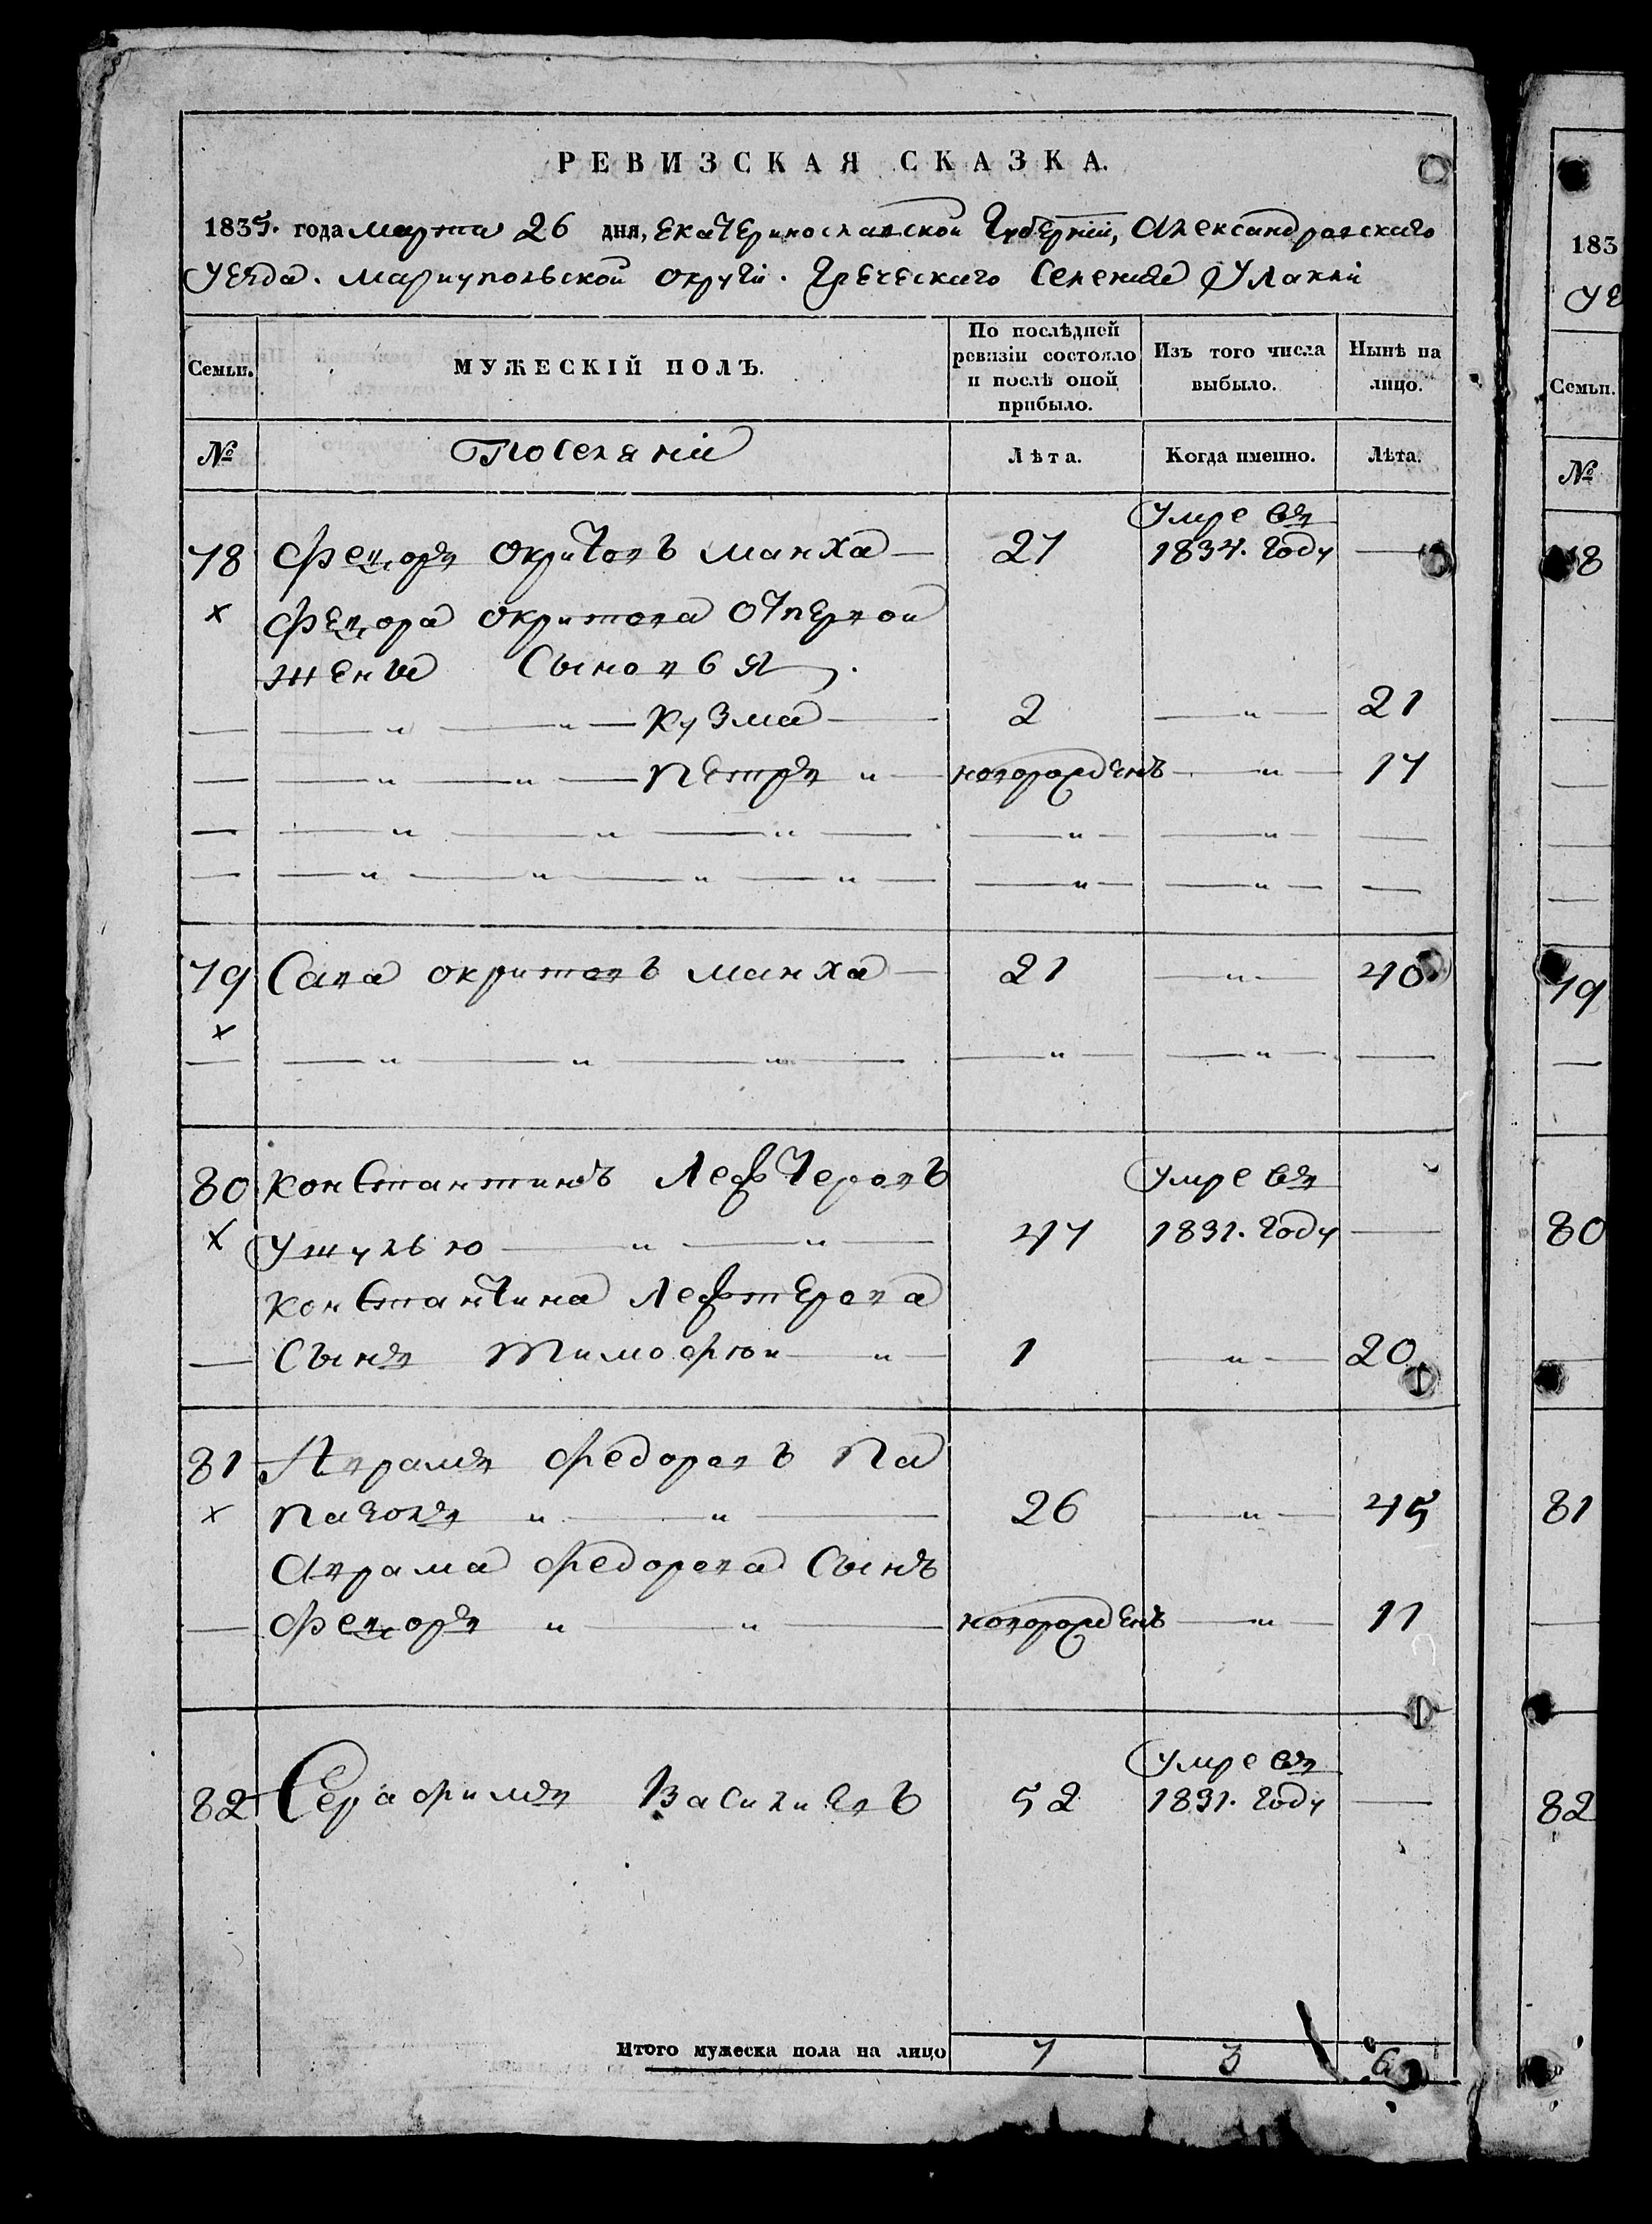 РЕВИЗСКАЯ СКАЗКА.
1835. года марта 26 дня, Екатеринославской Губерніи, Александровскаго
Уезда. Мариупольской округи. Греческаго Селения Улаклы
Семьи.
МУЖЕСКІЙ ПОЛЪ.
По послѣдней ревизіи состояло и послѣ оной прибыло.
Изъ того числа выбыло.
Нынѣ на лицо.
№
Поселяни
Лѣта.
Когда именно.
Лѣта.
Умре въ
78 Феѡдоръ Окритовъ Манха — 27 1834. году —
х Феѡдора Окритова от первой
жены Сыновья
— Кузма — 2 — 21
— Петръ — новорожденъ — 17
79 Сава Окритовъ Манха — 21 — 40
х
80 Константинъ Лефтеровъ Умре въ
х Ушулью — 47 1831. году —
Константина Лефтерова
— Сынъ Тимофѣй — 1 — 20
81 Аврамъ Федоровъ Па
х пазовъ — 26 — 45
Аврама Федорова Сынъ
— Феѡдоръ — новорожденъ — 11
Умре въ
82 Серафимъ Василиевъ 52 1831. году —
Итого мужеска пола на лицо 7 3 6
183
УЕ
Семьи.
№
78
79
80
81
82